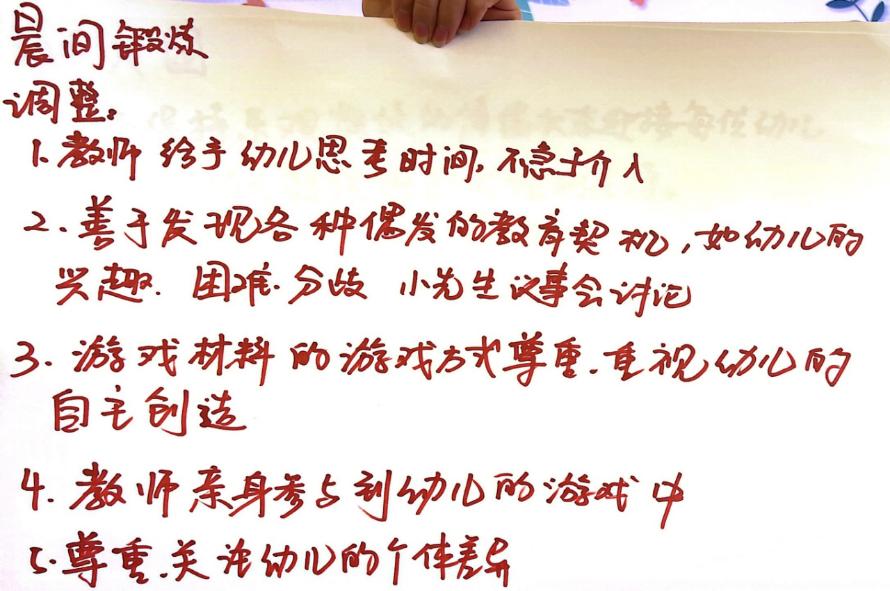 晨间锻炼
调整：
1. 教师给予幼儿思考时间，不急于介入
2. 善于发现各种偶发的教育契机，如幼儿的
兴趣、困难、分歧 小先生议事会讨论
3. 游戏材料的游戏方式尊重、重视幼儿的
自主创造
4. 教师亲身参与到幼儿的游戏中
5. 尊重、关注幼儿的个体差异